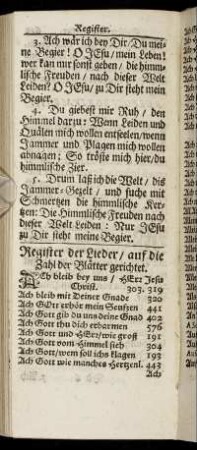 Register.
3. Ach wär ich bey Dir/ Du mei-
ne Begier! O JEsu/ mein Leben!
wer kan mir sonst geben/ die himm-
lische Freuden/ nach dieser Welt
Leiden? O JEsu/ zu Dir steht mein
Begier.
4. Du giebest mir Ruh/ den
Himmel darzu: Wenn Leiden und
Quälen mich wollen entseelen/ wenn
Jammer und Plagen mich wollen
abnagen; So tröste mich hier/ du
himmlische Zier.
5. Drum laß ich die Welt/ die
Jammer-Gezelt/ und suche mit
Schmertzen die himmlische Ker-
tzen: Die Himmlische Freuden nach
dieser Welt Leiden: Nur JEsu
zu Dir steht meine Begier.
Register der Lieder/ auf die
Zahl der Blätter gerichtet.
ACh bleib bey uns/ HErr Jesu
Christ. 303. 319
Ach bleib mit Deiner Gnade 320
Ach GOtt erhör mein Seufzen 441
Ach Gott gib du uns deine Gnad 402
Ach Gott thu dich erbarmen 576
Ach Gott und HErr/ wie groß 191
Ach Gott vom Himmel sieh 304
Ach Gott/ wem soll ichs klagen 193
Ach Gott wie manches Hertzenl. 443
Ach